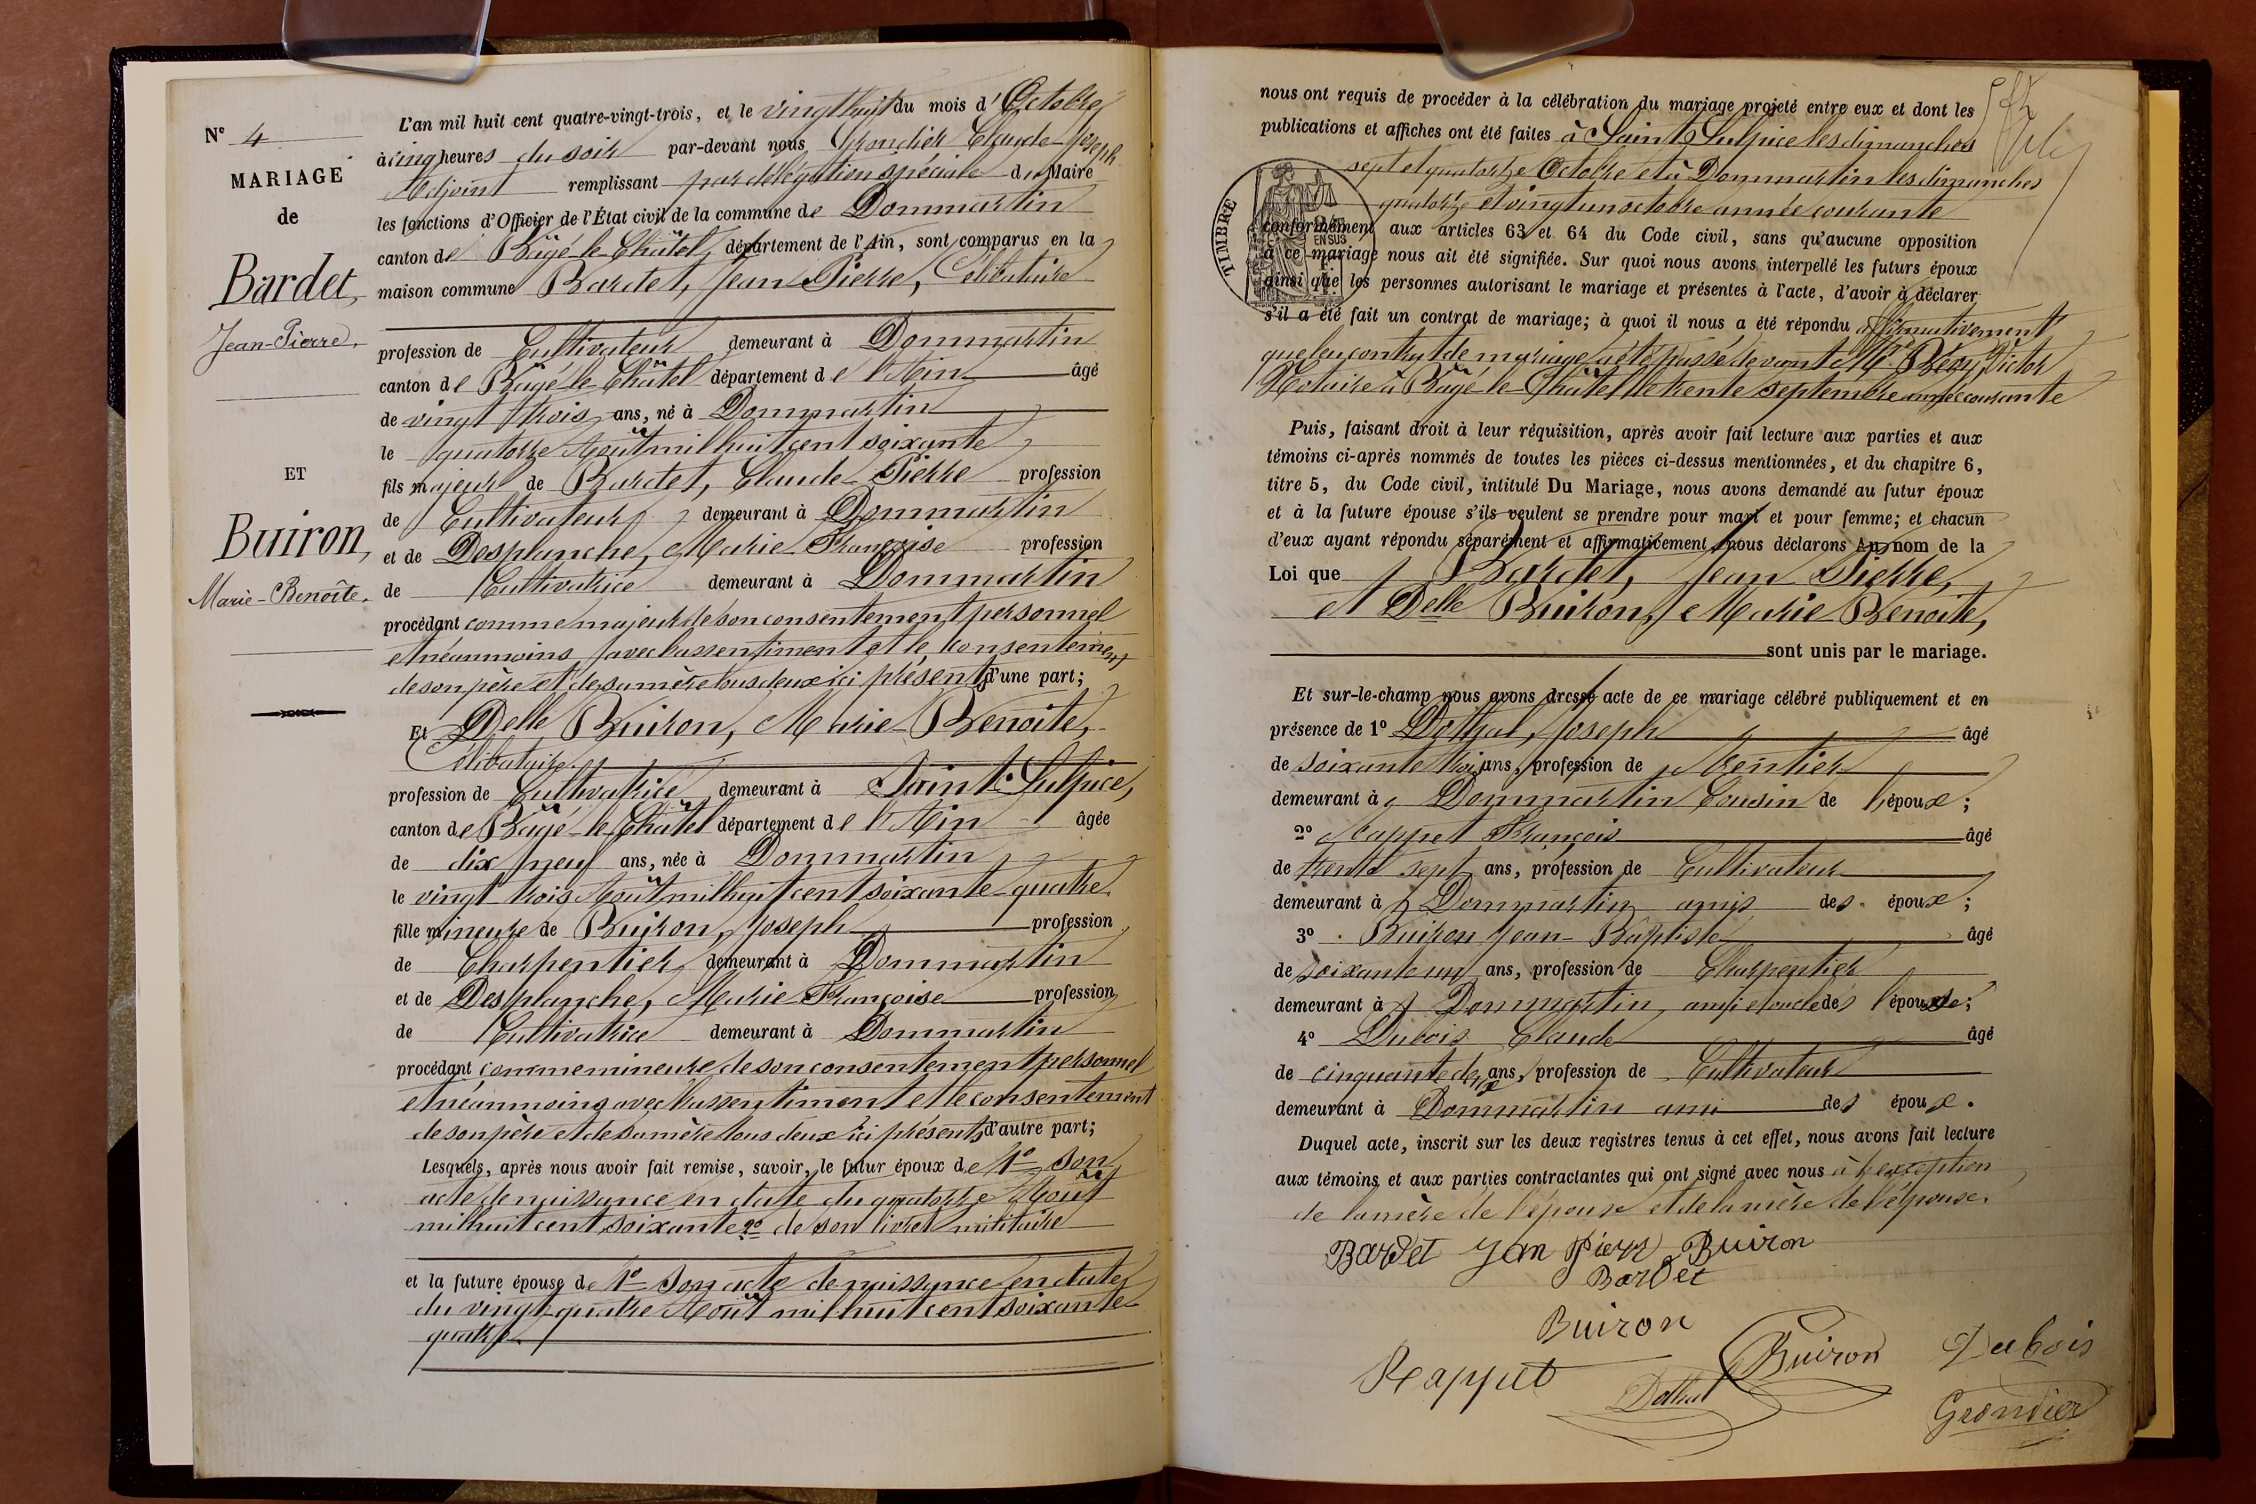 N° 4
MARIAGE
de
Bardet,
Jean-Pierre.
ET
Buiron,
Marie-Benoîte.
L'an mil huit cent quatre-vingt-trois, et le vingt huit du mois d'Octobre
à cinq heures du soir par-devant nous Grondier Claude Joseph
Adjoint remplissant par délégation spéciale du Maire
les fonctions d'Officier de l'État civil de la commune de Dommartin
canton de Bâgé-le-Châtel, département de l'Ain, sont comparus en la
maison commune Bardet, Jean Pierre, Célibataire
profession de Cultivateur demeurant à Dommartin
canton de Bâgé-le-Châtel département de l'Ain âgé
de vingt trois ans, né à Dommartin
le quatorze Août mil huit cent soixante
fils majeur de Bardet, Claude-Pierre profession
de Cultivateur demeurant à Dommartin
et de Desplanche, Marie Françoise profession
de Cultivatrice demeurant à Dommartin
procédant comme majeur de son consentement personnel
et néanmoins avec l'assentiment et le consentement
de son père et de sa mère tous deux ici présents d'une part;
Et Delle Buiron, Marie-Benoite,
Célibataire
profession de Cultivatrice demeurant à Saint-Sulpice,
canton de Bâgé-le-Châtel département de l'Ain âgée
de dix neuf ans, née à Dommartin
le vingt trois Août mil huit cent soixante-quatre
fille mineure de Buiron, Joseph profession
de Charpentier demeurant à Dommartin
et de Desplanche, Marie Françoise profession
de Cultivatrice demeurant à Dommartin
procédant comme mineure de son consentement personnel
et néanmoins avec l'assentiment et le consentement
de son père et de sa mère tous deux ici présents d'autre part;
Lesquels, après nous avoir fait remise, savoir, le futur époux de 1° Son
acte de naissance en date du quatorze Août
mil huit cent soixante 2° de son livret militaire
et la future épouse de 1° Son acte de naissance en date
du vingt-quatre Août mil huit cent soixante
quatre
nous ont requis de procéder à la célébration du mariage projeté entre eux et dont les
publications et affiches ont été faites à Saint Sulpice les dimanches
sept et quatorze Octobre et à Dommartin les dimanches
quatorze et vingt un octobre année courante
TIMBRE
EN SUS
conformément aux articles 63 et 64 du Code civil, sans qu'aucune opposition
à ce mariage nous ait été signifiée. Sur quoi nous avons interpellé les futurs époux
ainsi que les personnes autorisant le mariage et présentes à l'acte, d'avoir à déclarer
s'il a été fait un contrat de mariage; à quoi il nous a été répondu affirmativement
que leur contrat de mariage a été passé devant Me Victor
Notaire à Bâgé-le-Châtel le trente septembre année courante
Puis, faisant droit à leur réquisition, après avoir fait lecture aux parties et aux
témoins ci-après nommés de toutes les pièces ci-dessus mentionnées, et du chapitre 6,
titre 5, du Code civil, intitulé Du Mariage, nous avons demandé au futur époux
et à la future épouse s'ils veulent se prendre pour mari et pour femme; et chacun
d'eux ayant répondu séparément et affirmativement, nous déclarons Au nom de la
Loi que Bardet, Jean Pierre,
et Delle Buiron, Marie Benoite,
sont unis par le mariage.
Et sur-le-champ nous avons dressé acte de ce mariage célébré publiquement et en
présence de 1° Dothal, Joseph âgé
de soixante trois ans, profession de Rentier
demeurant à Dommartin Cousin de l'époux;
2° Rappet François âgé
de trente sept ans, profession de Cultivateur
demeurant à Dommartin amis des époux;
3° Buiron Jean-Baptiste âgé
de soixante un ans, profession de Charpentier
demeurant à Dommartin, oncle de l'épouse;
4° Dubois Claude âgé
de cinquante deux ans, profession de Cultivateur
demeurant à Dommartin ami des époux.
Duquel acte, inscrit sur les deux registres tenus à cet effet, nous avons fait lecture
aux témoins et aux parties contractantes qui ont signé avec nous à l'exception
de la mère de l'épouse et de la mère de l'épouse.
Bardet Jean Pierr Buiron
Bardet
Buiron
Rappet Dothal Buiron Dubois
Grondier